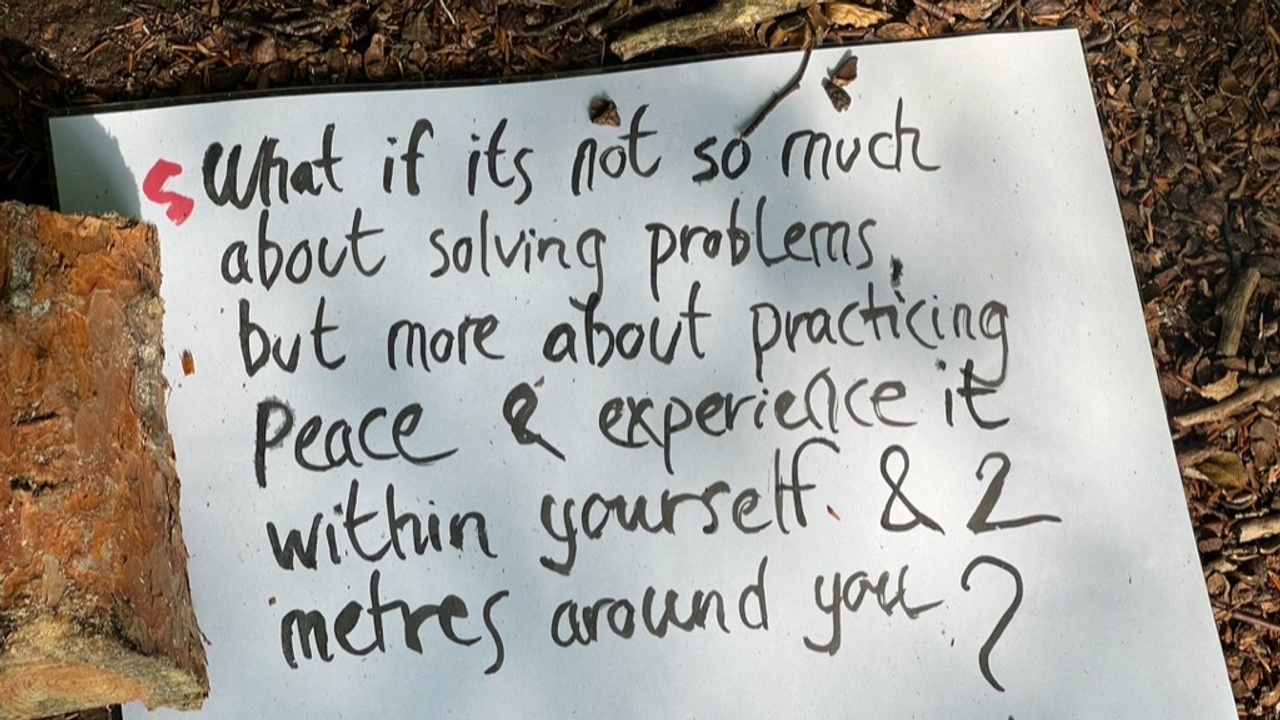 5 What if its not so much
about solving problems,
but more about practicing
peace & experience it
within yourself & 2
metres around you?